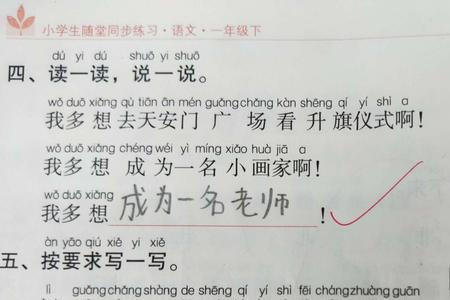 小学生随堂同步练习·语文·一年级下
dú yi dú shuō yi shuō
四、读一读，说一说。
wǒ duō xiǎng qù tiān ān mén guǎng chǎng kàn shēng qí yí shì a
我多想去天安门广场看升旗仪式啊！
wǒ duō xiǎng chéng wéi yì míng xiǎo huà jiā a
我多想成为一名小画家啊！
wǒ duō xiǎng
我多想成为一名老师！
àn yāo qiú xiě yi xiě
五、按要求写一写。
lì guǎng chǎng shàng de shēng qí yí shì fēi cháng zhuāng guān